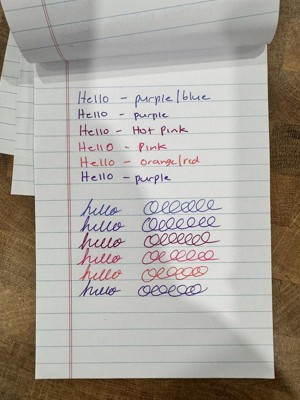 Hello - purple/blue
Hello - purple
Hello - Hot Pink
Hello - Pink
Hello - orange/red
Hello - purple
hello
hello
hello
hello
hello
hello